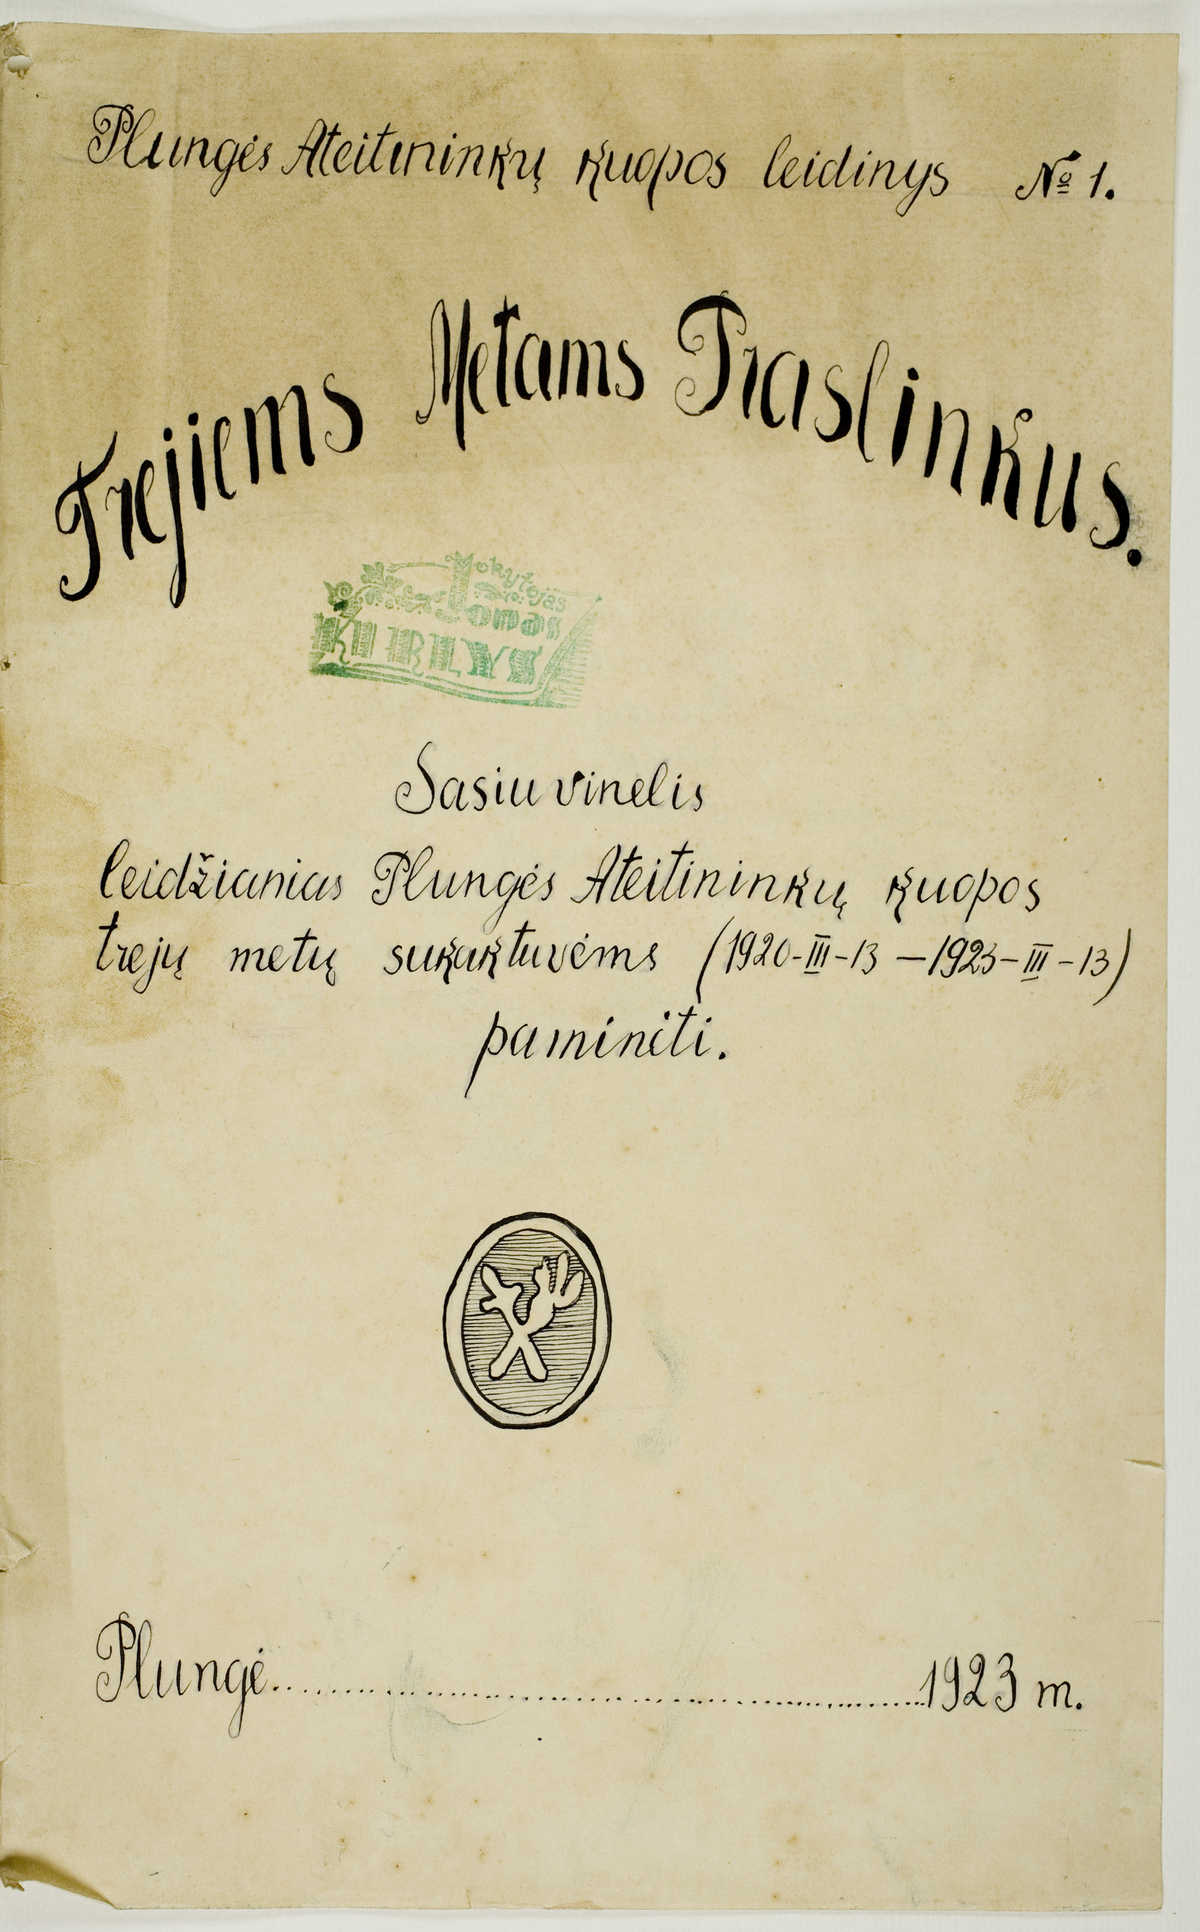 Plungės Ateitininkų kuopos leidinys № 1.
Trejiems Metams Praslinkus.
Mokytojas
Jonas
Sąsiuvinelis
leidžiamas Plungės Ateitininkų kuopos
trejų metų sukaktuvėms (1920-III-13 — 1923-III-13)
paminėti.
Plungė 1923 m.